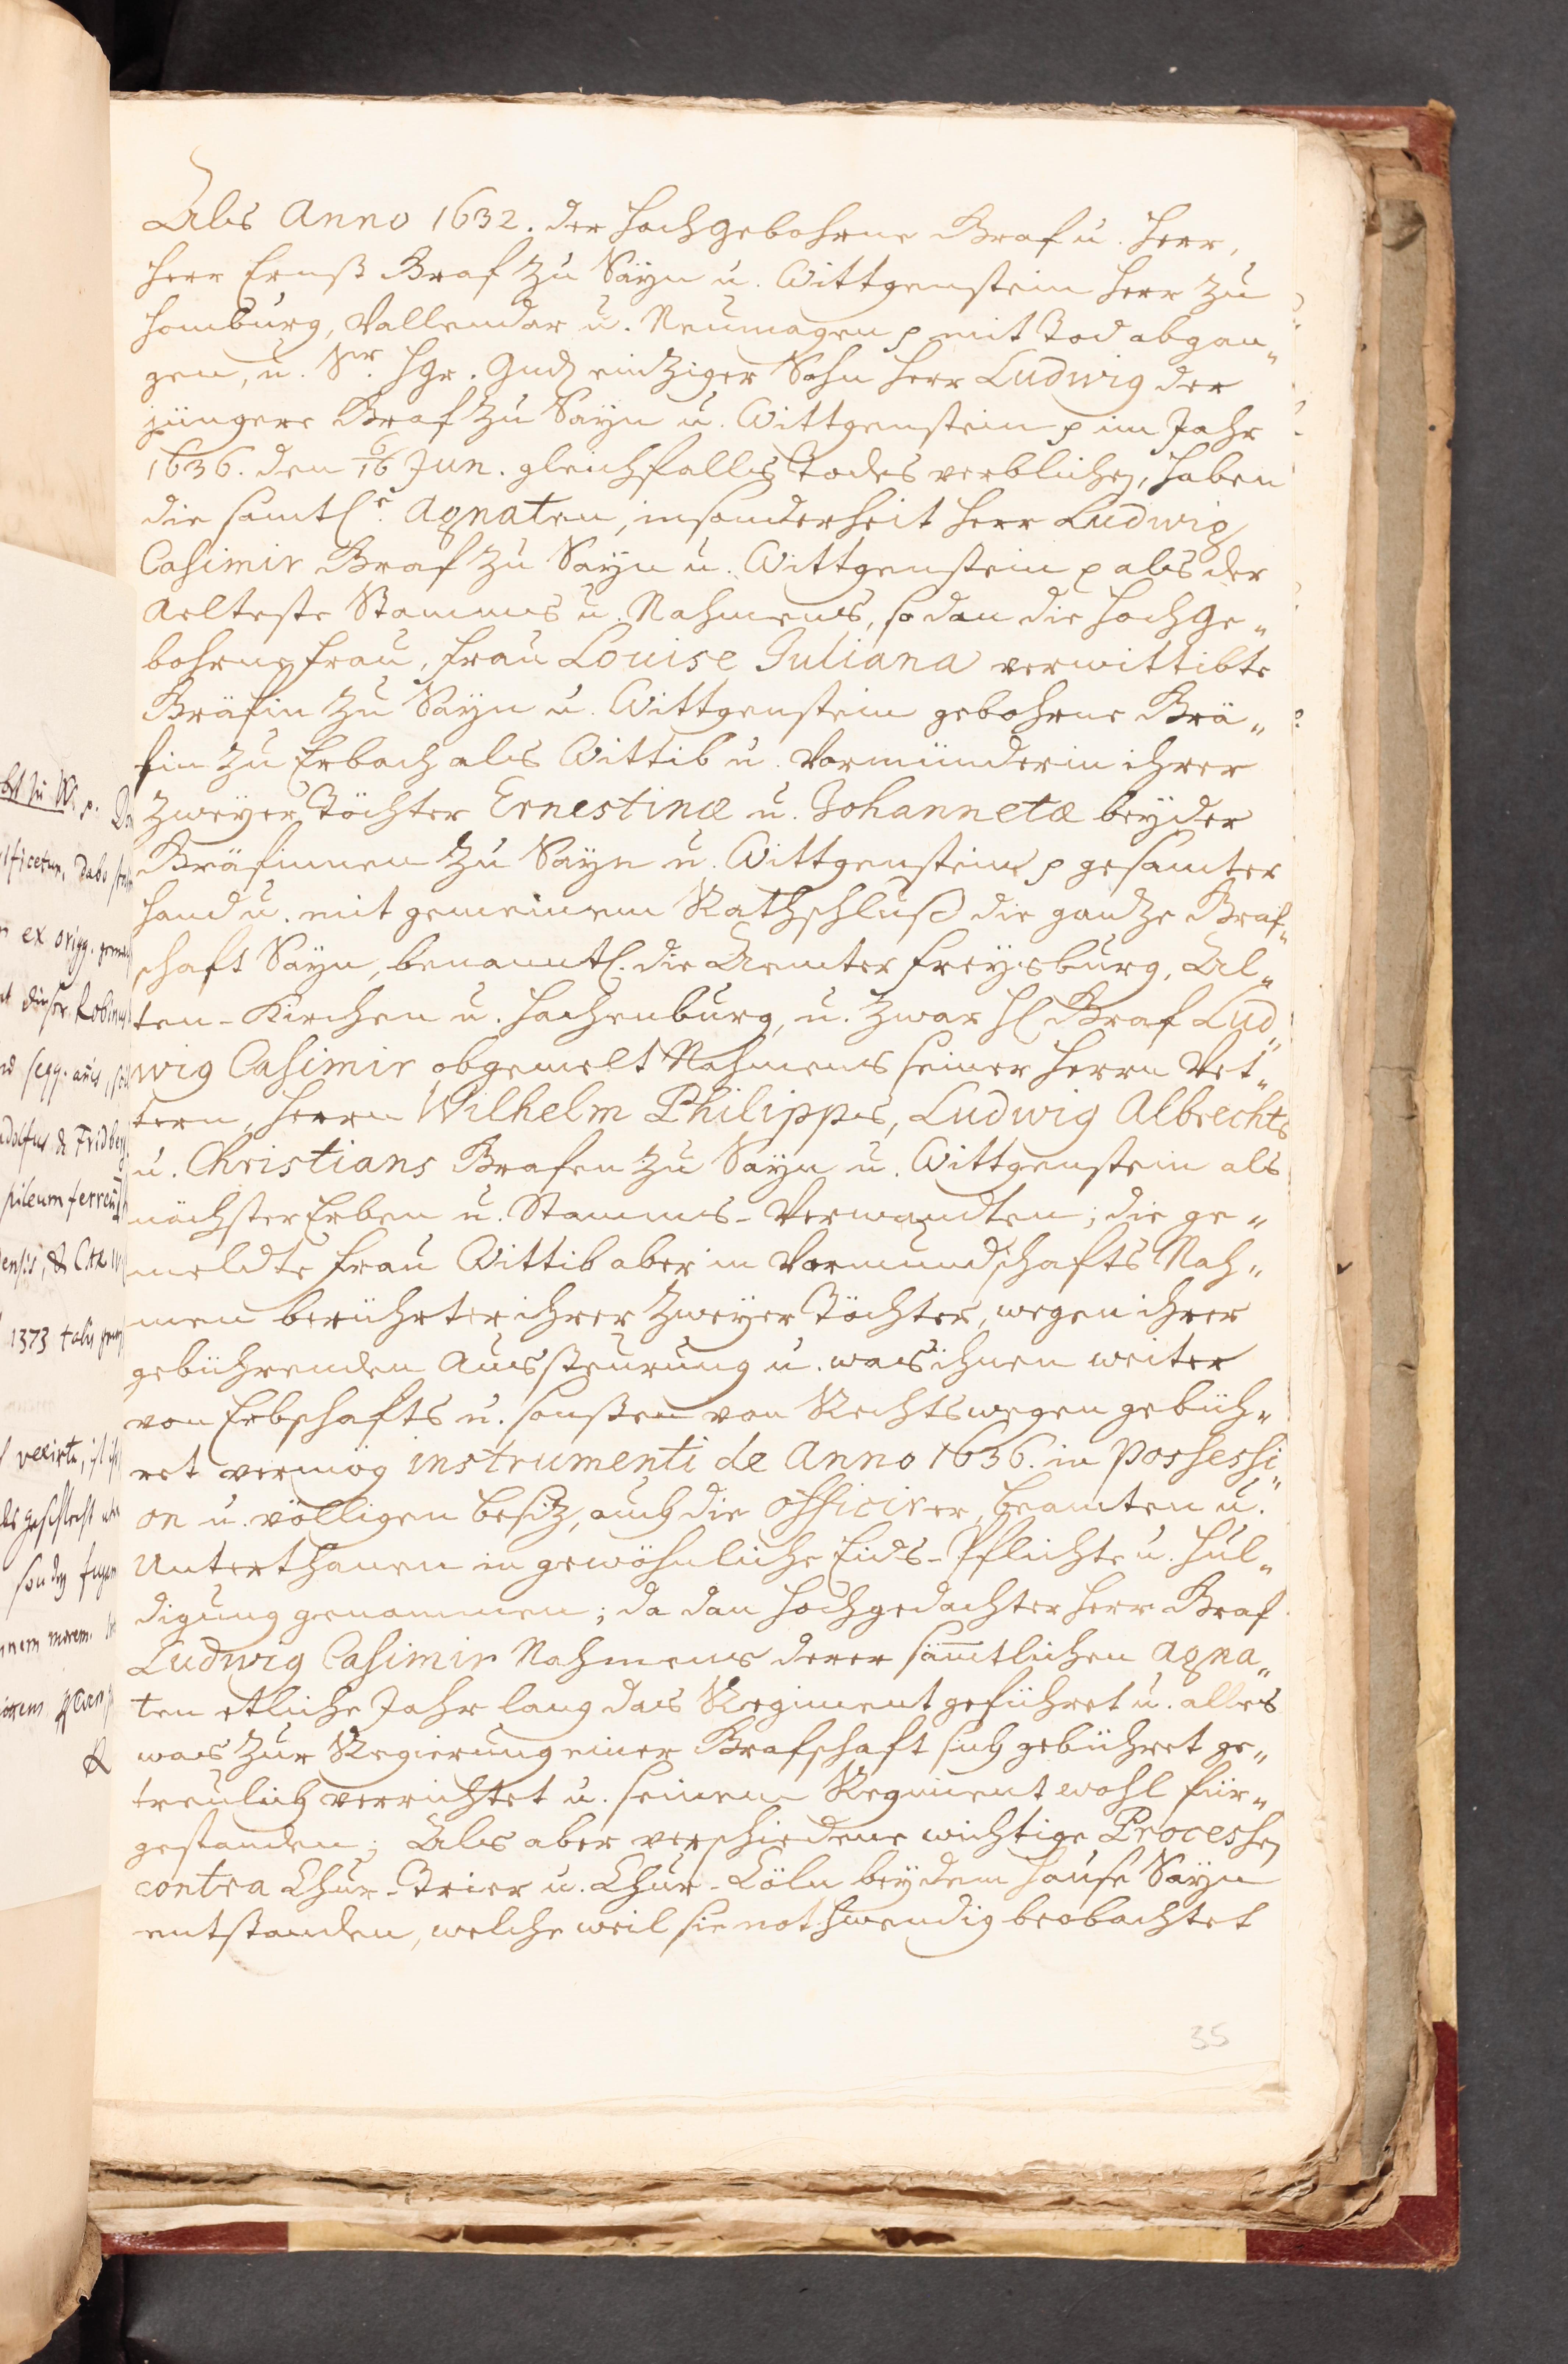 Als Anno 1632. der Hochgebohrne Graf u. Herr,
Herr Ernst Graf zu Sayn u. Wittgenstein Herr zu
Homburg, Vallendar u. Neumagen p mit Tod abgan„
gen, u. Sr. Hgr. Gnd. eintziger Sohn Herr Ludwig der
jüngere Graf zu Sayn u. Wittgenstein p im Jahr
1636. den 6/16 Jun. gleichfalls Todes verblichen, haben
die samtl.e Agnaten, insonderheit Herr Ludwig
Casimir Graf zu Sayn u. Wittgenstein p als der
Aelteste Stammes u. Nahmens, so dan die Hochge„
bohrne Frau, Frau Louise Juliana verwittibte
Gräfin zu Sayn u. Wittgenstein gebohrne Grä„
fin zu Erbach als Wittib u. Vormünderin ihrer
zweyer Töchter Ernestinæ u. Johannetæ beyder
Gräfinnen zu Sayn u. Wittgenstein p gesamter
Hand u. mit gemeinem Rathschluß die gantze Graf„
schaft Sayn, benanntl. die Aemter Freysburg, Al„
ten-Kirchen u. Hachenburg, u. zwar Hl. Graf Lud„
wig Casimir obgemelt Nahmens seiner Herrn Vet„
tern, Herrn Wilhelm Philipps, Ludwig Albrechts
u. Christians Grafen zu Sayn u. Wittgenstein als
nächster Erben u. Stamms-Verwandten; die ge„
meldte Frau Wittib aber in Vormundschafts Nah„
men berührter ihrer zweyer Töchter, wegen ihrer
gebührenden Aussteurung u. was ihnen weiter
von Erbschafts u. sonsten von Rechtswegen gebüh„
ret vermög instrumenti de Anno 1636. in Possessi„
on u. völligen Besitz, auch die Officirer, Beamten u.
Unterthanen in gewöhnliche Eids-Pflichte u. Hul„
digung genommen; da dan Hochgedachter Herr Graf
Ludwig Casimir Nahmens derer sämtlichen Agna„
ten etliche Jahr lang das Regiment geführet u. alles
was zur Regierung einer Grafschaft sich gebühret ge„
treulich verrichtet u. seinem Regiment wohl für„
gestanden; Als aber verschiedene wichtige Processen
contra Chur-Trier u. Chur-Cöln bey dem Hause Sayn
entstanden, welche weil sie nothwendig beobachtet
35